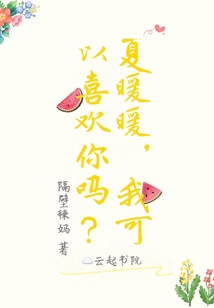 夏暖暖，我可
以喜欢你吗？
隔壁辣妈 著
云起书院